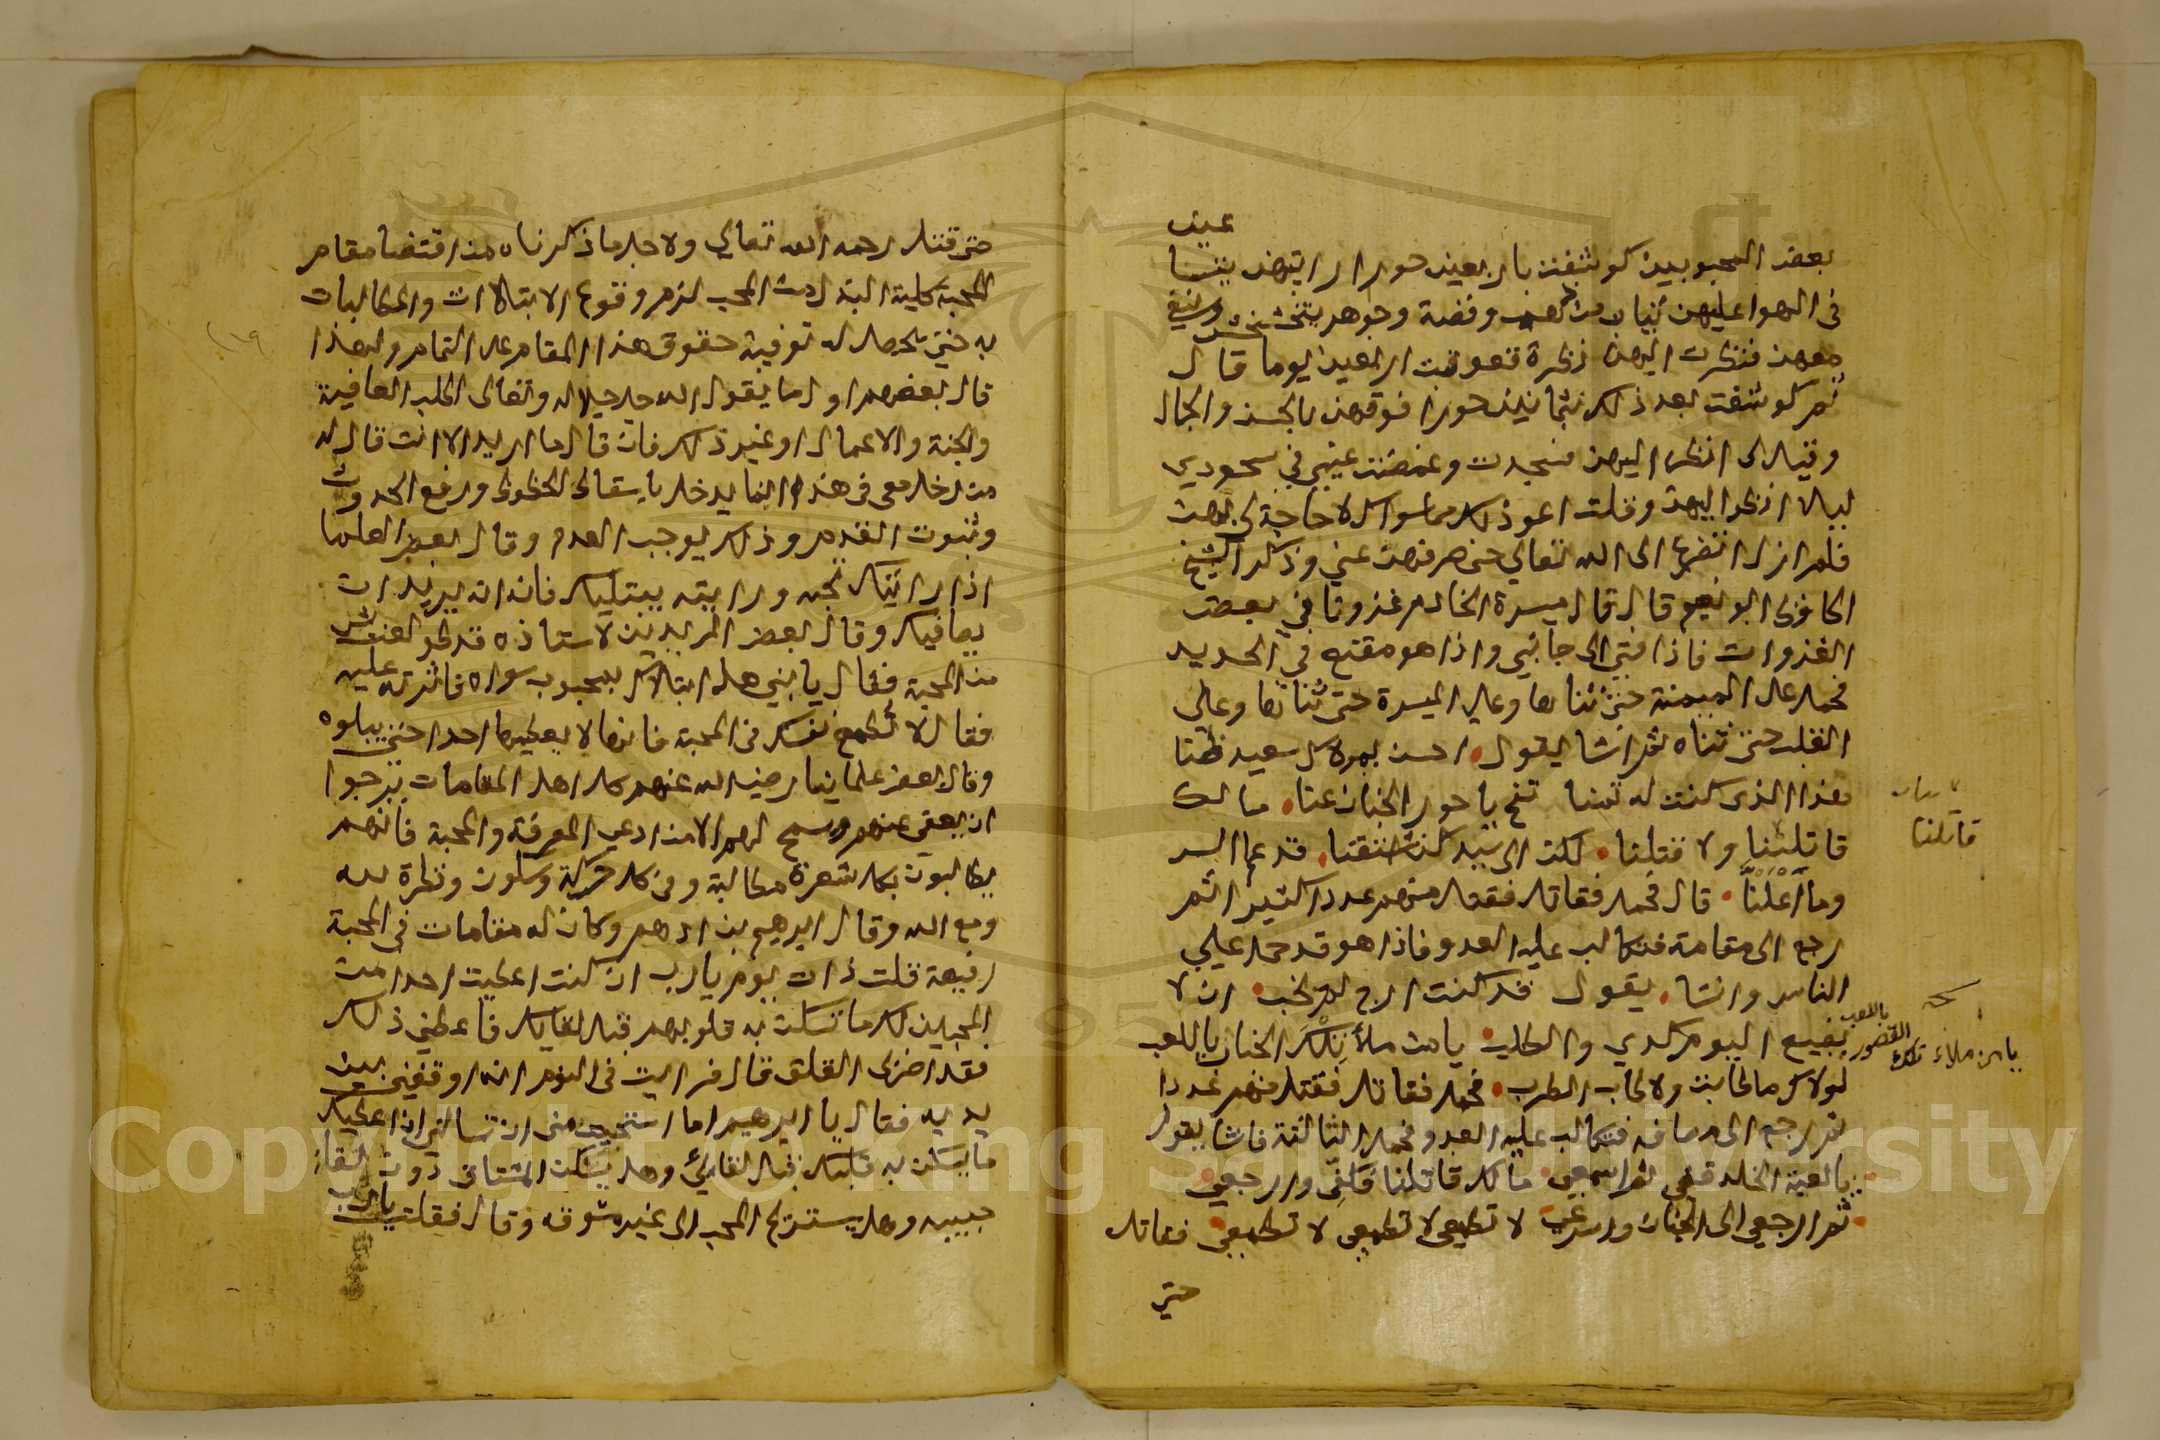 بعض المحبوبين كوشفت باربعين حورا رايتهن يتسا عين
في الهوا عليهن ثياب من ذهب وفضة وجوهر يتخشخش وينثني
معهن فنظرت اليهن نظرة فعوقبت اربعين يوما قال
ثم كوشفت بعد ذلك بثمانين حورا فوقهن بالحسن والجمال
وقيل لي انظر اليهن فسجدت وغمضت عيني في سجودي
ليلا انظر اليهن وقلت اعوذ بك مما سواك لا حاجة لي بهن
فلم ازل اتضرع الى الله تعالي حتى صرفهن عني وذكر الشيخ
الحافظ ابو نعيم قال قال ميسرة الخادم غزونا في بعض
الغزوات فاذا فتي الى جانبي واذا هو مقنع في الحديد
فحمل على الميمنة حتى ثناها وعلي الميسرة حتى ثناها وعلي
القلب حتى ثناه ثم انشا يقول احسن بمولاك سعيد ظنا
هذا الذي كنت له تمنا تنح يا حور الجنان عنا مالك
قاتلتنا ولا قتلنا لكن الى سيدكن اشتقنا قد علم السر
وما اعلنا قال فحمل فقاتل فقتل منهم عددا كثيرا ثم
رجع الى مقامه فتكالب عليه العدو فاذا هو قد حمل علي
الناس وانشا يقول قد كنت ارجو لم يخب ان لا
يضيع اليوم كدي والطلب يا من ملأ تلك الجنان باللعب
لولاك ما طابت ولا طاب الطرب فحمل فقاتل فقتل منهم عددا
ثم رجع الى مصافه فتكالب عليه العدو فحمل الثالثة فانشا يقول
يا لعبة الخلد قفي ثم اسمعي مالك قاتلنا فكفي وارجعي
ثم ارجعي الى الجنان واسرعي لا تطمعي لا تطمعي لا تطمعي فقاتل
حتي
قاتلنا
يا من ملاء تلك القصور باللعب
حتى قتل رحمه الله تعالي ولاجل ما ذكرناه من اقتضا مقام
المحبة كلية البذل من المحب لزم وقوع الابتلاات والمطالبات
به حتى يحصل له توفية حقوق هذا المقام على التمام ولهذا
قال بعضهم اول ما يقول الله جل جلاله وتعالى اطلب العافية
والجنة والاعمال او غير ذلك فان قال ما اريد الا انت قال له
من دخل معي في هذا انما يدخل باسقاط الحظوظ ورفع الحدوث
وثبوت القدم وذلك يوجب العدم وقال بعض العلما
اذا رايتك تحبه ورايته يبتليك فانه يريد ان
يصافيك وقال بعض المريدين لاستاذه قد طولعت بشي
من المحبة فقال يا بني هل ابتلاك بمحبوب سواه فاثرته عليه
فقال لا تطمع نفسك في المحبة فانها لا يعطيها احدا حتى يبلوه
وقال بعض علمائنا رضي الله عنهم كل اهل المقامات يرجوا
ان يعفى عنهم ويسمح لهم الا من ادعى المعرفة والمحبة فانهم
يطالبون بكل شعرة مطالبة وفي كل حركة وسكون ونظرة لله
ومع الله وقال ابرهيم بن ادهم وكان له مقامات في المحبة
رفيعة قلت ذات يوم يارب ان كنت اعطيت احدا من
المحبين لك ما تسكن به قلوبهم قبل لقايك فاعطني ذلك
فقد اضر بي القلق قال فرايت في النوم انه اوقفني بين
يديه فقال يا ابرهيم اما استحييت مني ان تسالني ان اعطيك
ما يسكن به قلبك قبل لقائي وهل يسكن المشتاق دون لقاء
حبيبه وهل يستريح المحب الى غير مشوقه وقال فقلت يارب